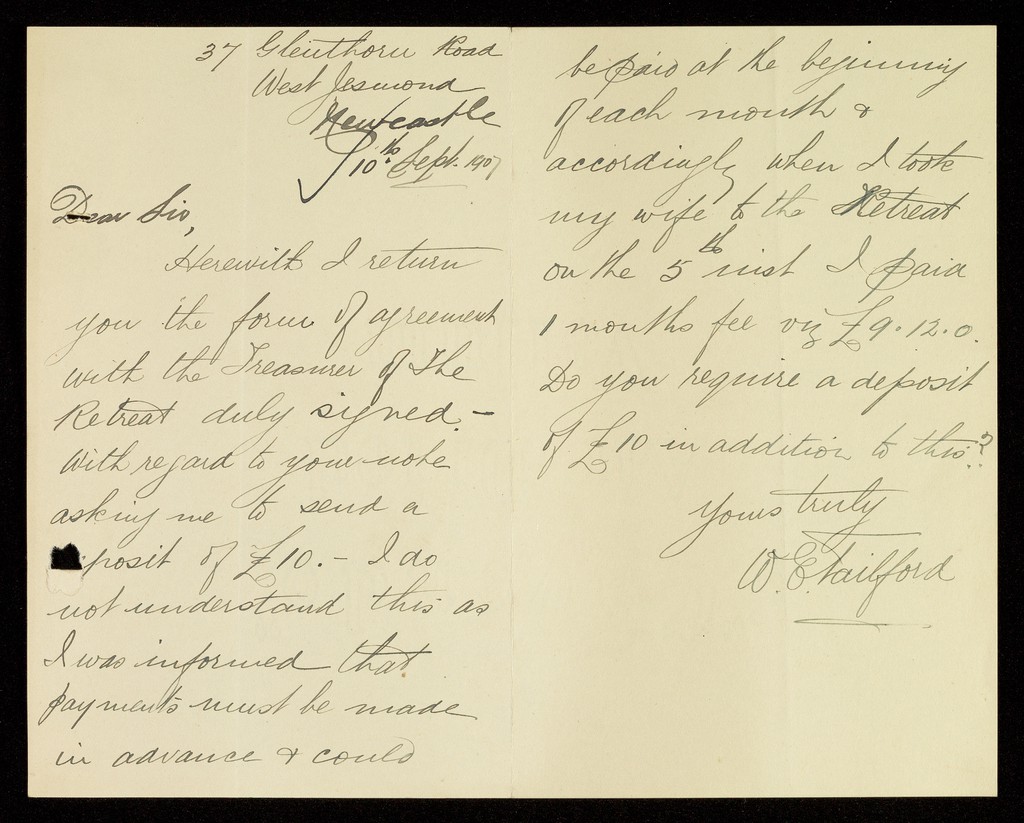 37 Glenthorn Road
West Jesmond
Newcastle
10th Sept. 1907
Dear Sir,
Herewith I return
you the form of agreement
with the Treasurer of The
Retreat duly signed. –
With regard to your note
asking me to send a
posit of £10. – I do
not understand this as
I was informed that
payments must be made
in advance & could
be paid at the beginning
of each month &
accordingly when I took
my wife to the Retreat
on the 5th inst I paid
1 months fee viz £9.12.0.
Do you require a deposit
of £10 in addition to this?
Yours truly
W. E. Tailford